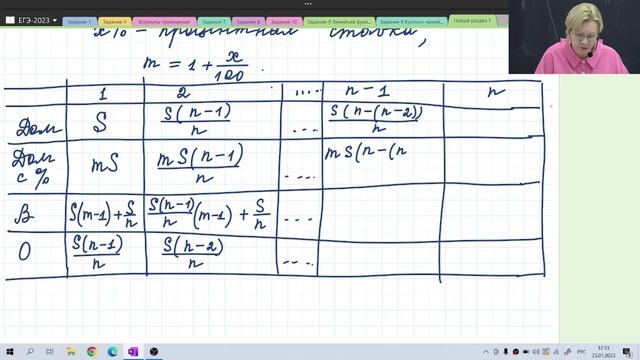 ЕГЭ-2023
Задание 1
Задание 4
Формулы приведения
Задание 6
Задание 7
Задание 8
Задание 10
Задание 9 Линейная функ...
Задание 9 Кусочно-линей...
Новый раздел 1
x% - процентная ставка,
m = 1 + x/100.
1 2 .... n-1 n
Долг S S(n-1)/n ... S(n-(n-2))/n
Долг с % mS mS(n-1)/n ... mS(n-(n
В S(m-1)+S/n S(n-1)/n (m-1) + S/n ...
О S(n-1)/n S(n-2)/n ....
РУС
12:15
23.01.2023